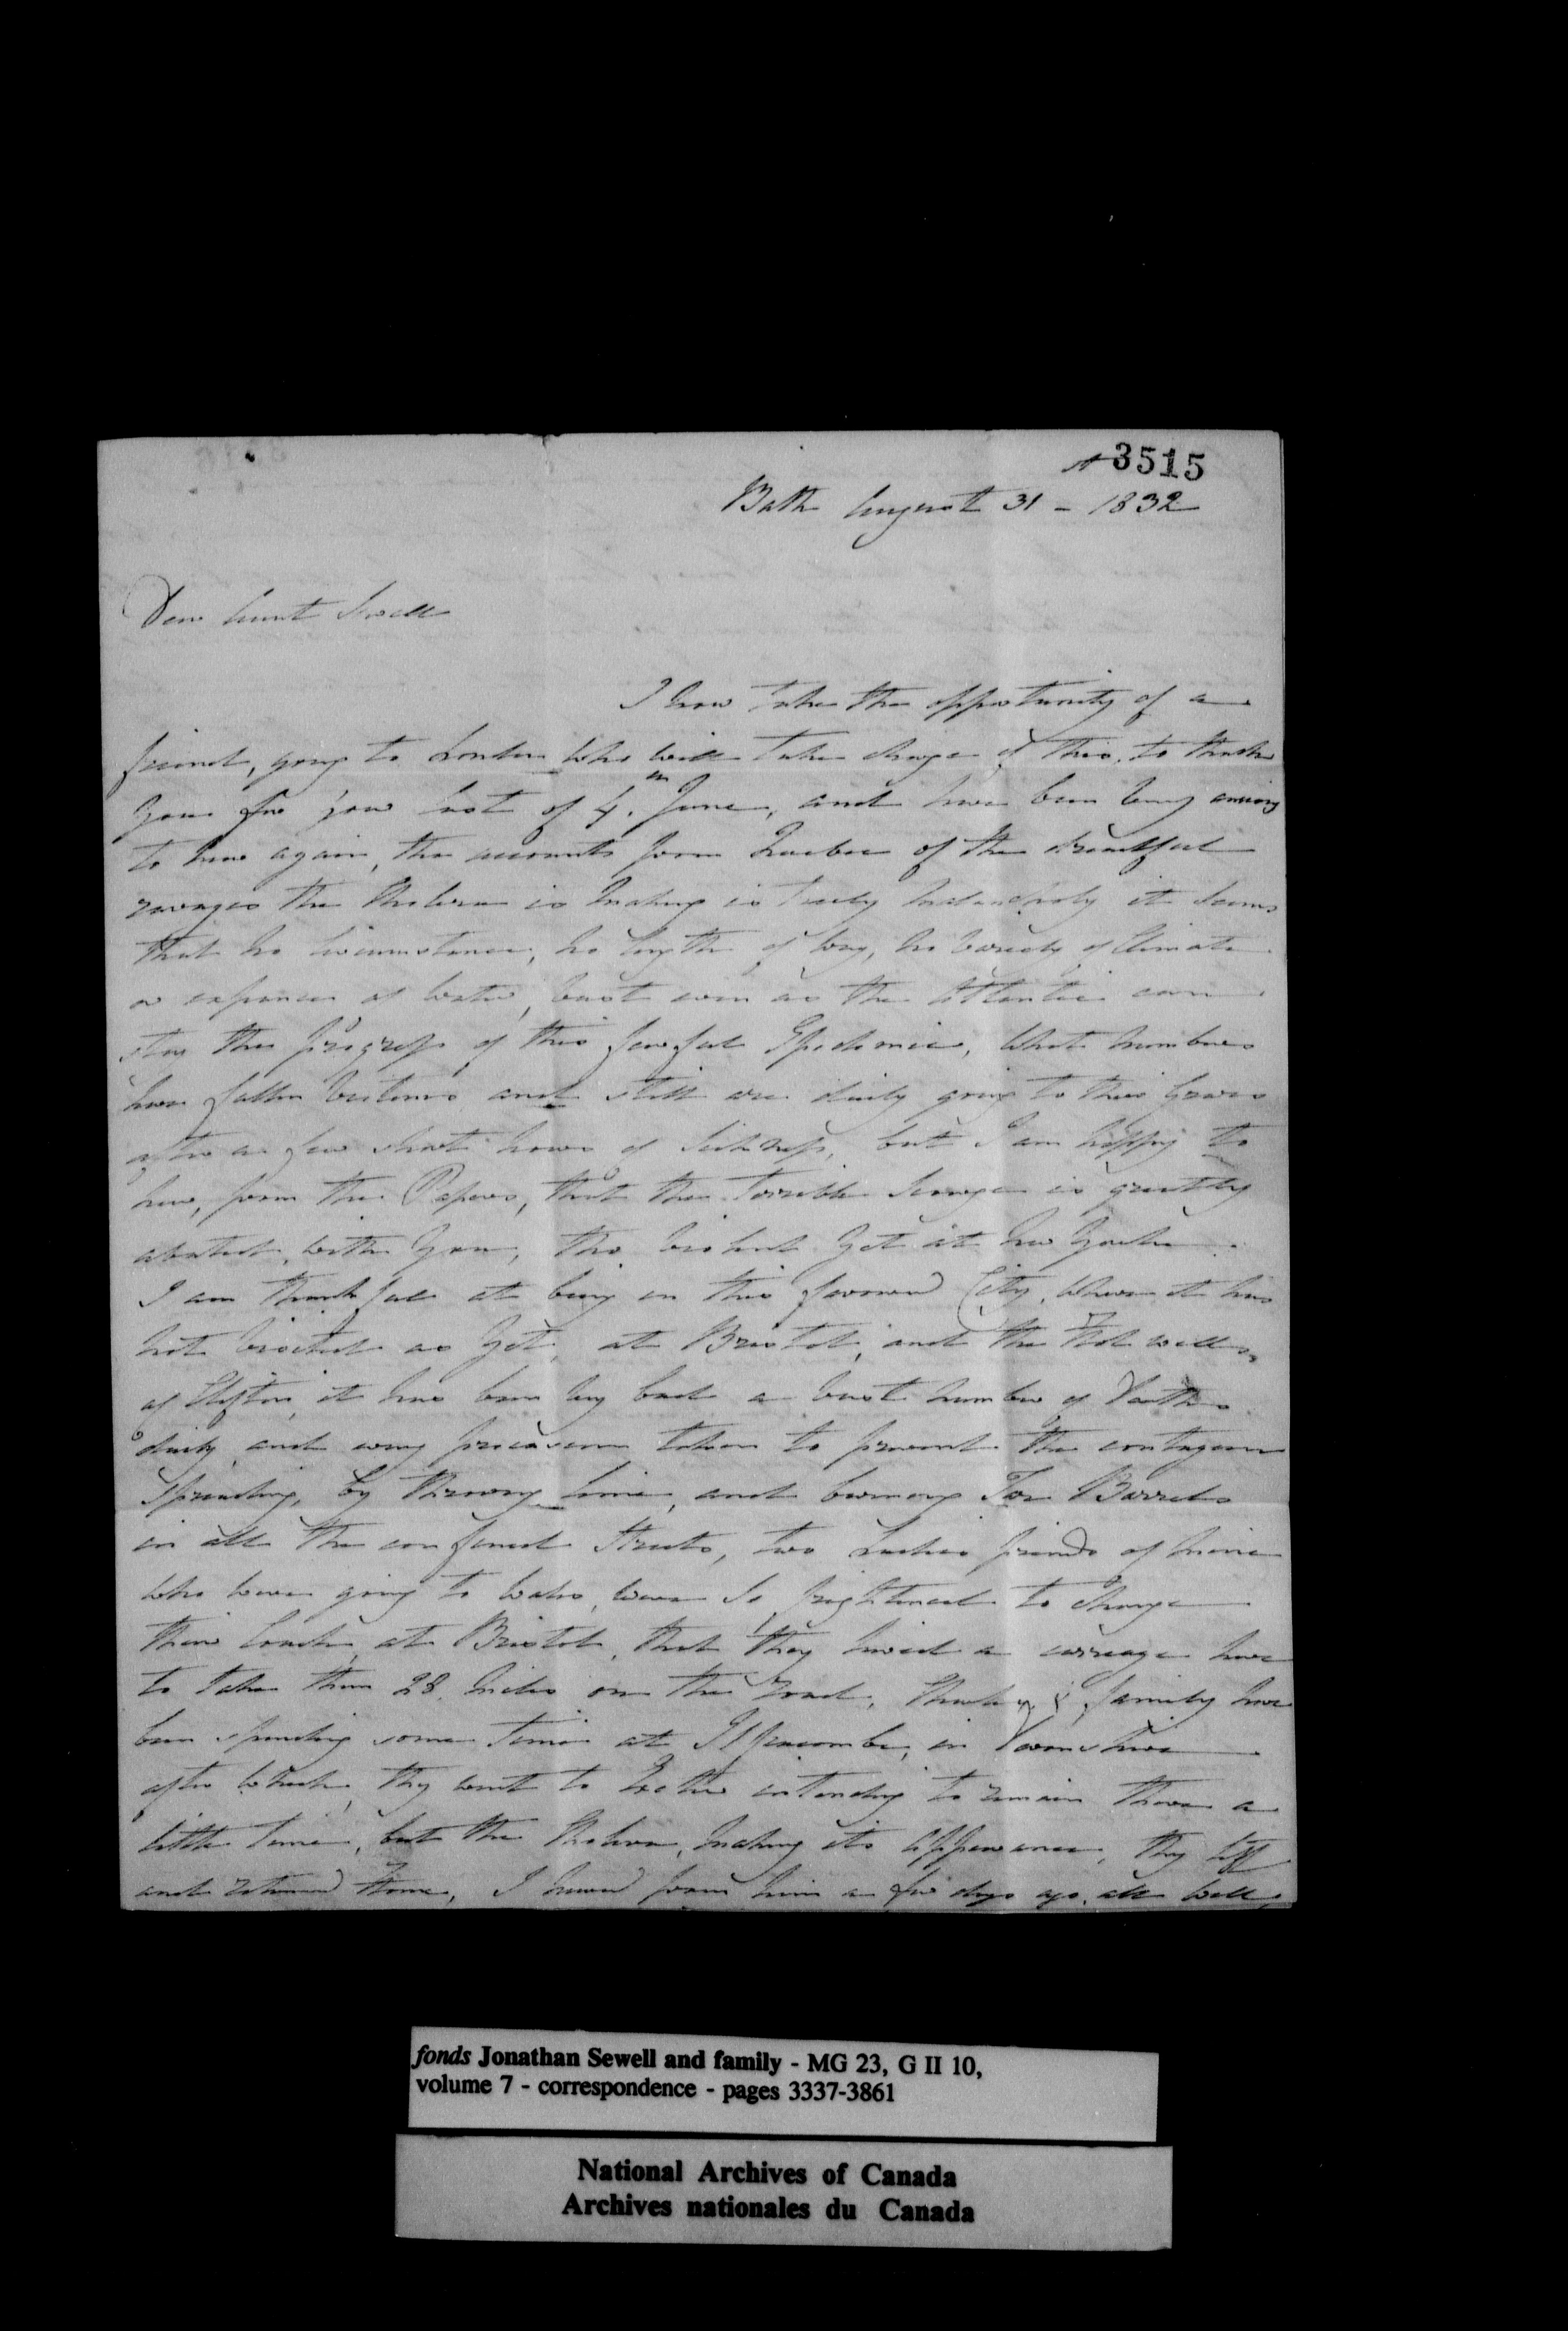 3515
Bath August 31 - 1832
Dear Aunt Sewell
I now take the opportunity of a
friend, going to London who will take charge of this, to thank
you for your last of 4th June, and have been very anxious
to hear again, the accounts from Quebec of the dreadful
ravages the Cholera is making is truly melancholy it seems
that no circumstance, no length of way, no variety of Climate
or expanse of water, vast even as the Atlantic can
stop the progress of this fearful Epidemic, what numbers
have fallen victims and still are daily going to their Graves
after a few short hours of sickness, but I am happy to
hear, from the Papers, that the terrible scourge is greatly
abated, with you, tho violent yet at New York
I am thankful at being in this favored City, where it has
not visited as yet, at Bristol, and the Hot wells
of Clifton, it has been very bad a vast number of Deaths
daily, and every precaution taken to prevent the contagion
spreading, by throwing lime, and burning Tar Barrels
in all the confined Streets, two Ladies friends of mine
who were going to Wales, were so frightened to change
their Coach, at Bristol, that they hired a carriage here
to take them 28 miles on the road, & family have
been spending some time at Ilfracombe, in Devonshire
after which, they went to Exeter intending to remain there a
little time, but the Cholera, making its appearance, they left
and returned Home, I heard from him a few days ago, all well,
fonds Jonathan Sewell and family - MG 23, G II 10,
volume 7 - correspondence - pages 3337-3861
National Archives of Canada
Archives nationales du Canada